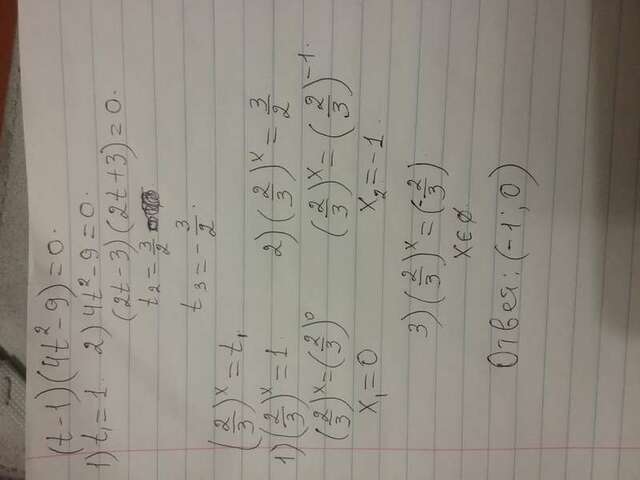 (t-1)(4t²-9)=0.
1) t₁=1. 2) 4t²-9=0.
(2t-3)(2t+3)=0.
t₂=3/2
t₃=-3/2.
(2/3)ˣ=t₁
1) (2/3)ˣ=1 2) (2/3)ˣ=3/2
(2/3)ˣ=(2/3)⁰ (2/3)ˣ=(2/3)⁻¹.
x₁=0 x₂=-1.
3) (2/3)ˣ=(-2/3)
x∈∅.
Ответ: (-1; 0)